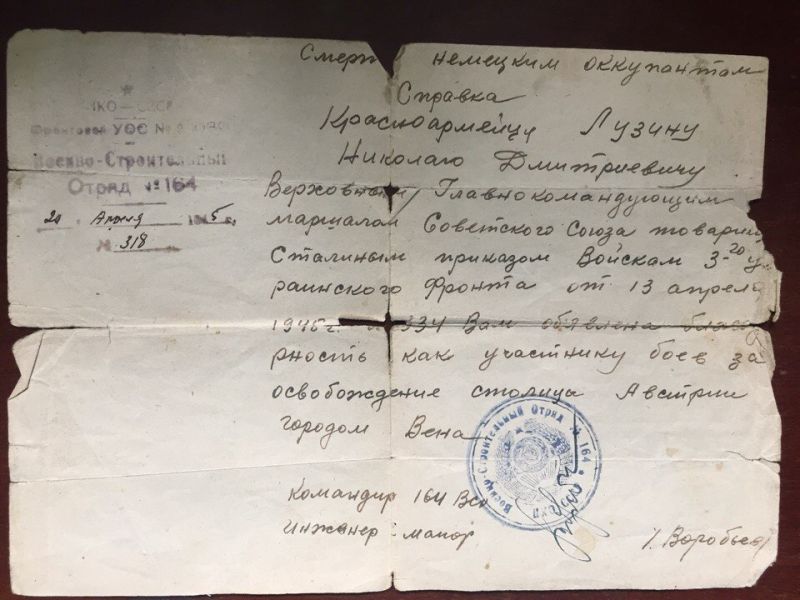 НКО — СССР
Фронтовой УОС №
Военно-Строительный
Отряд № 164
20 Апреля 1945 г.
№ 318
Смерт немецким оккупантам
Справка
Красноармейцу Лузину
Николаю Дмитриевичу
Верховным Главнокомандующим
маршалом Советского Союза товарищ
Сталиным приказом Войскам 3-го Ук
раинского Фронта от 13 апреля
1945 г. 334 Вам объявлена благо
рность как участнику боев за
освобождение столица Австрии
городом Вена
Военно-Строительный Отряд № 164
Командир 164 Всо
Инженер майор / Воробьев/